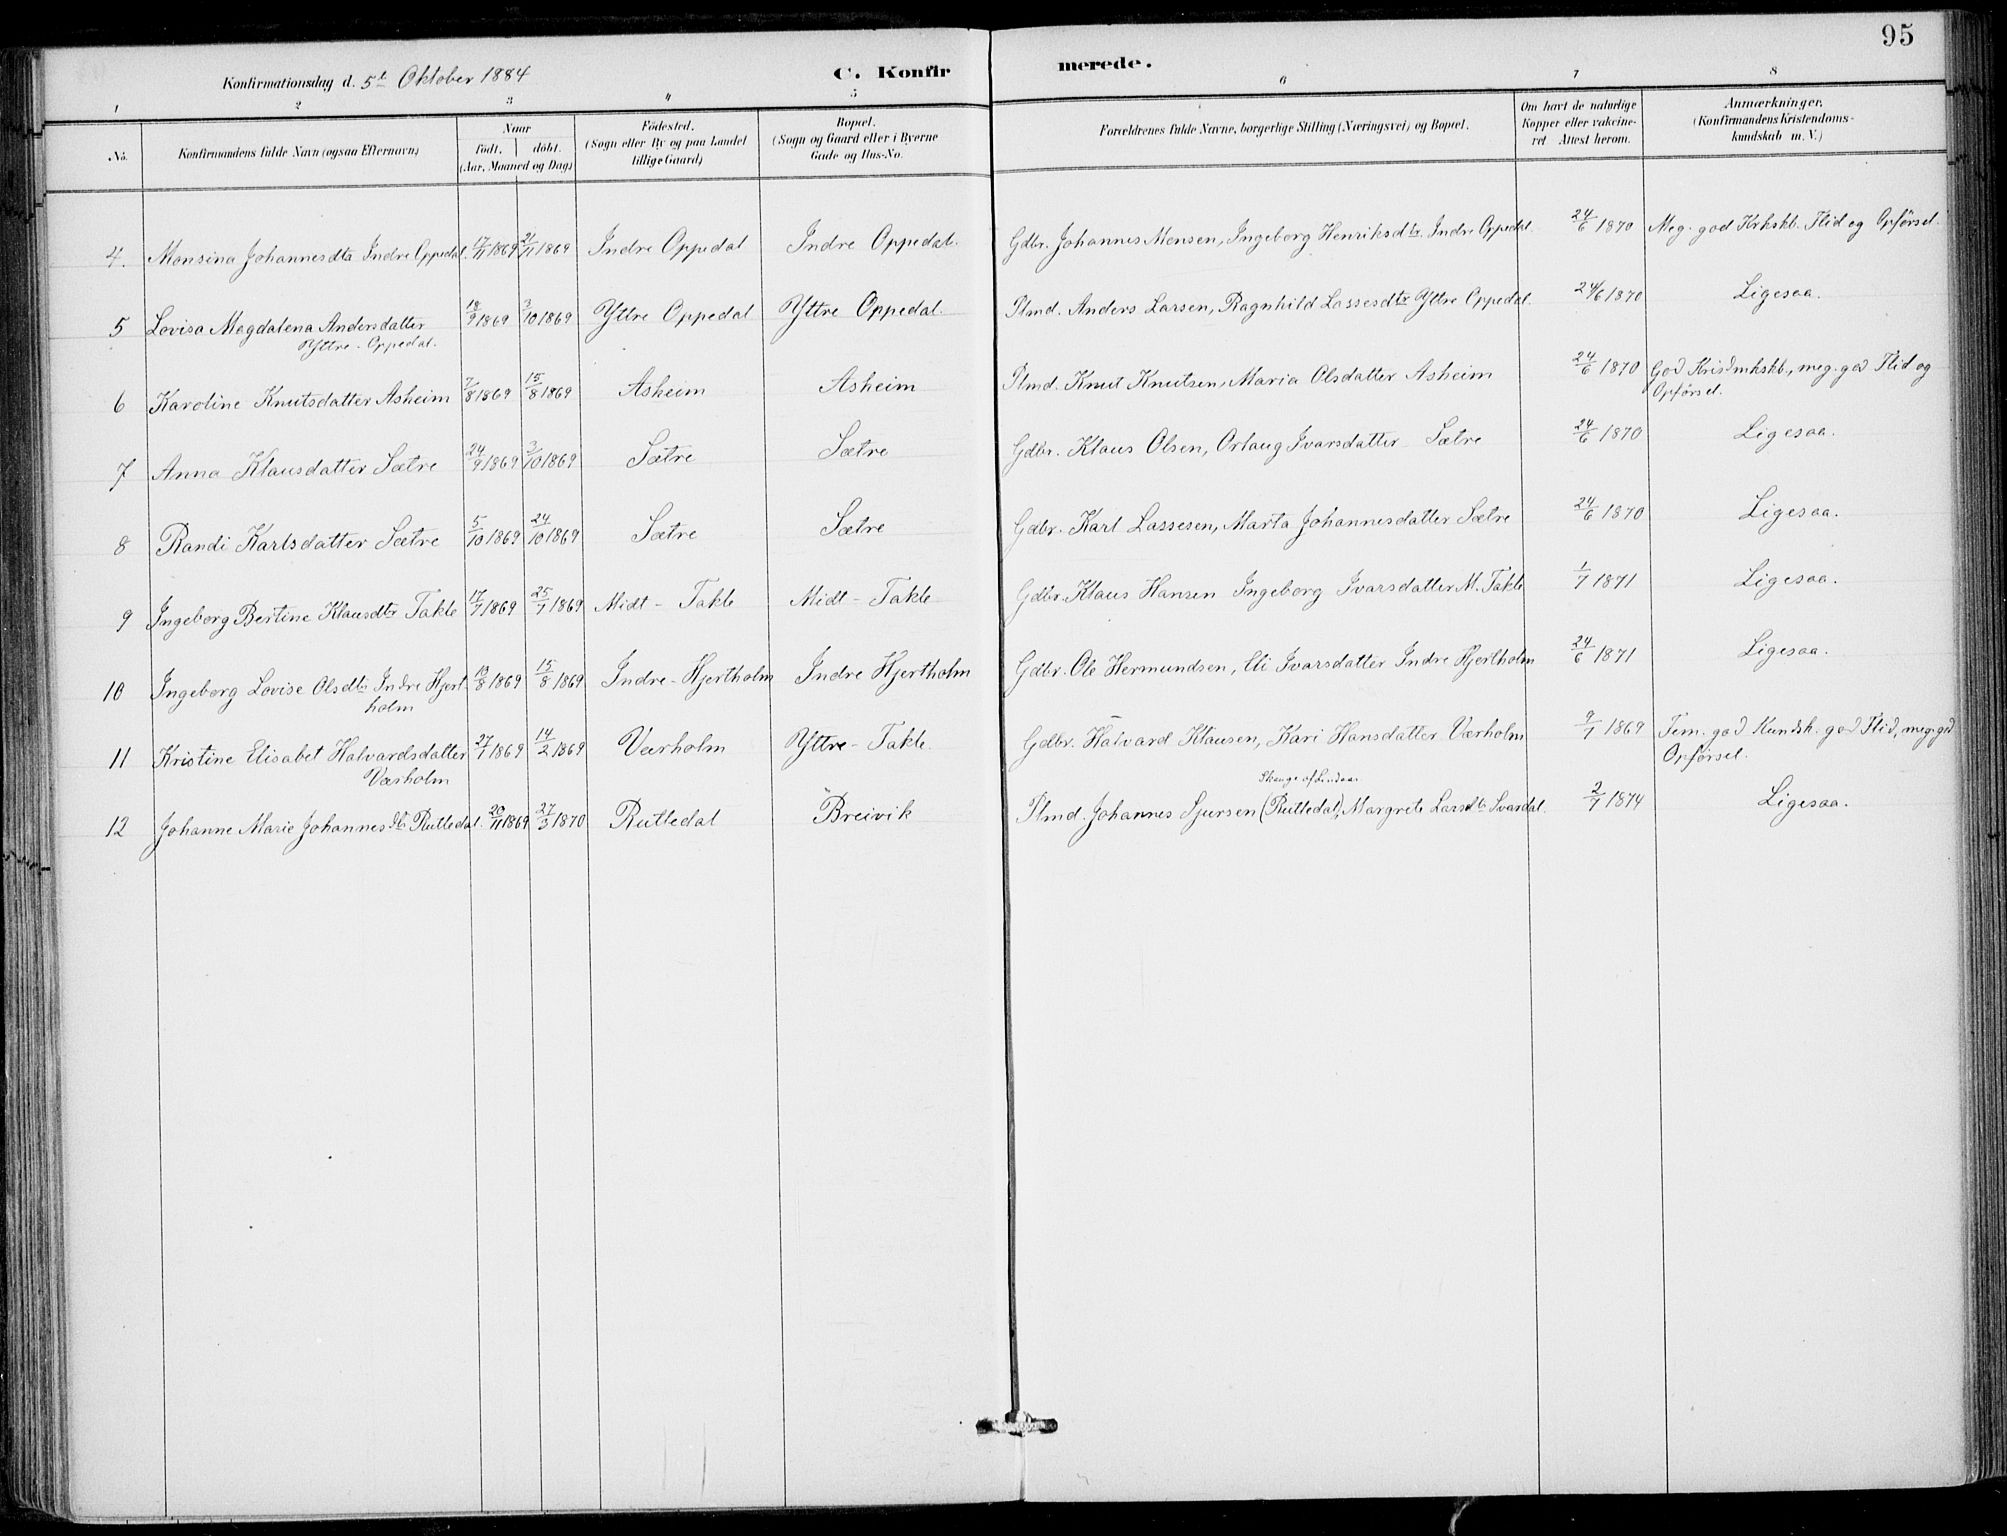 95
Konfirmationsdag d. 5te Oktober 1884 C. Konfirmerede.
1 2 3 4 5 6 7 8
No. Konfirmandens fulde Navn (ogsaa Efternavn) Naar født. døbt. (Aar, Maaned og Dag) Fødested. (Sogn eller By og paa Landet tillige Gaard) Bopæl. (Sogn og Gaard eller i Byerne Gade og Hus-No. Forældrenes fulde Navne, borgerlige Stilling (Næringsvei) og Bopæl. Om havt de naturlige Kopper eller vakcineret Attest herom. Anmærkninger. (Konfirmandens Kristendomskundskab m. V.)
4. Monsina Johannesdtr Indre Oppedal. 17/11 1869 21/11 1869 Indre Oppedal Indre Oppedal. Gdbr. Johannes Monsen, Ingeborg Henriksdtr. Indre Oppedal. 24/6 1870 Meg. god Krkskb. Flid og Opførsel.
5 Lovisa Magdalena Andersdatter 18/9 1869 3/10 1869 Yttre Oppedal Yttre Oppedal. Plmd. Anders Larsen, Ragnhild Lassesdtr Yttre Oppedal. 24/6 1870 Ligesaa.
Yttre-Oppedal.
6 Karoline Knutsdatter Asheim 7/8 1869 15/8 1869 Asheim Asheim Plmd. Knut Knutsen, Maria Olsdatter Asheim 24/6 1870 God Kristndkskb., meg. god Flid og
Opførsel.
7 Anna Klausdatter Sætre 24/9 1869 3/10 1869 Sætre Sætre Gdbr. Klaus Olsen, Orlaug Ivarsdatter Sætre 24/6 1870 Ligesaa.
8 Randi Karlsdatter Sætre 5/10 1869 24/10 1869 Sætre Sætre Gdbr. Karl Lassesen, Marta Johannesdatter Sætre 24/6 1870 Ligesaa.
9 Ingeborg Bertine Klausdtr Takle 17/7 1869 25/7 1869 Midt-Takle Midt-Takle Gdbr. Klaus Hansen Ingeborg Ivarsdatter M. Takle 1/7 1871 Ligesaa.
10 Ingeborg Lovise Olsdtr Indre Hjert- 10/8 1869 15/8 1869 Indre-Hjertholm Indre Hjertholm Gdbr. Ole Hermundsen, Eli Ivarsdatter Indre Hjertholm 24/6 1871 Ligesaa.
holm
11 Kristine Elisabet Halvardsdatter 27/1 1869 14/2 1869 Værholm Yttre-Takle. Gdbr. Halvard Klausen, Kari Hansdatter Værholm 9/7 1869 Tem. god Kundsk. god Flid, meg. god
Værholm Opførsel.
Skauge af Lindaas
12 Johanne Marie Johannesdtr Rutledal. 20/11 1869 27/3 1870 Rutledal Breivik Plmd. Johannes Sjursen (Rutledal), Margrete Larsdtr Svardal. 2/7 1874 Ligesaa.